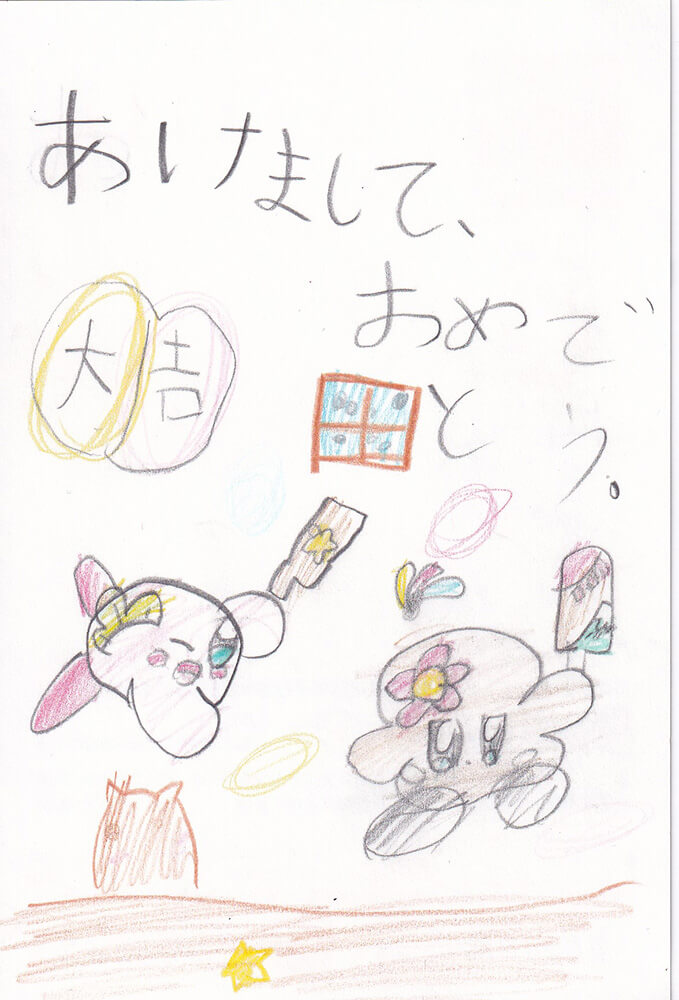 あけまして、
おめで
とう。
大吉